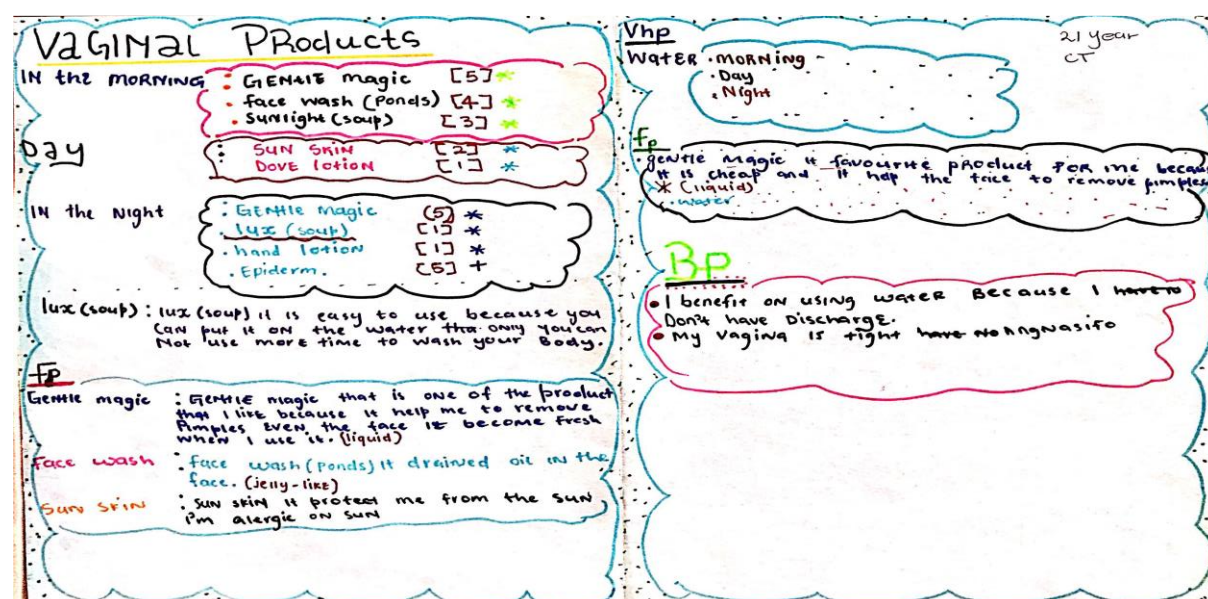 VaGINal PRoducts
IN the MORNING : GENtlE magic [5] *
. face wash (Ponds) [4] *
. Sunlight (soup) [3] *
Day : SUN SKIN [2] *
DOVE lotion [1] *
IN the Night : GENtlE magic (5) *
. lux (soup) [1] *
. hand lotion [1] *
. Epiderm. [5] +
lux (soup) : lux (soup) it is easy to use because you
can put it on the water tha only you can
Not use more time to wash your Body.
FP
GENtlE magic : GENtlE magic that is one of the product
that I like because it help me to remove
Pimples EVEN the face it become fresh
when I use it. (liquid)
Face wash : face wash (ponds) it drained oil in the
face. (jelly-like)
Sun SKIN : Sun skin it protect me from the sun
I'm alergic on sun
Vhp
21 year
CT
WatER . MORNiNg -
. Day
. Night
fp
. gentle magic it favourite product for me becaus
it is cheap and it help the face to remove pimples
* (liquid)
. water
BP
• I benefit on using water Because I have to
Don't have Discharge.
• My vagina is tight have